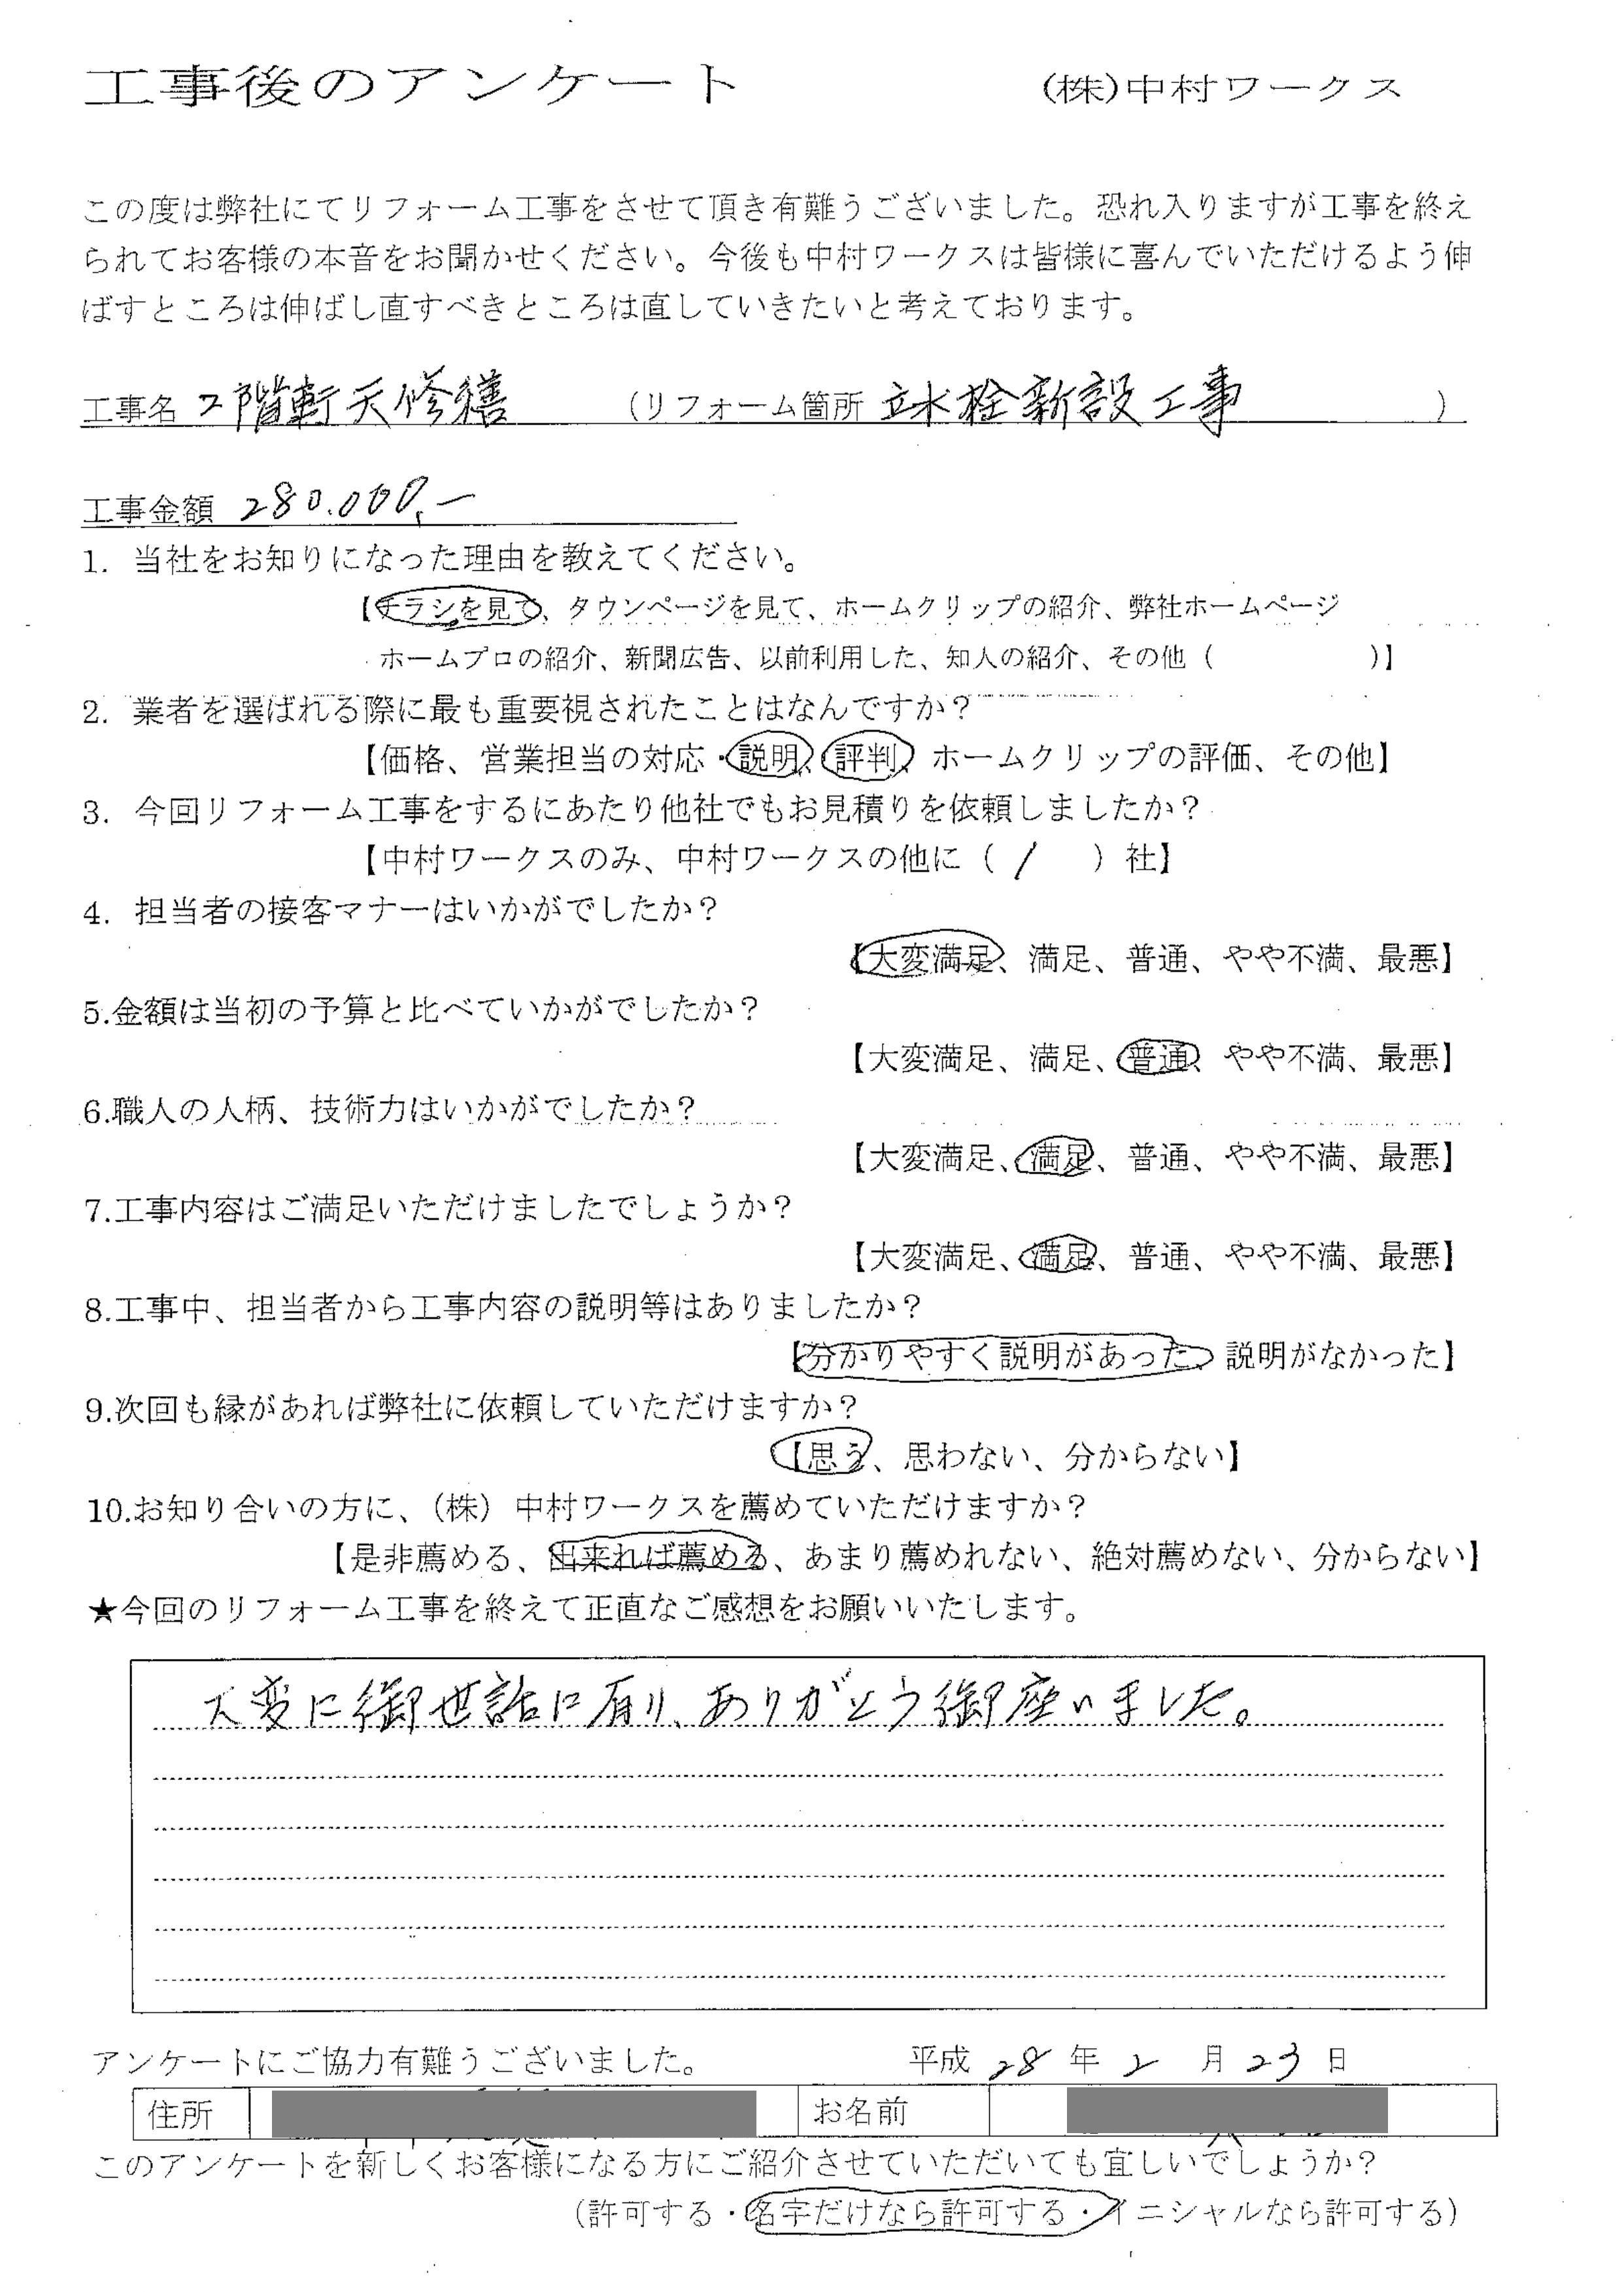 工事後のアンケート　(株)中村ワークス
この度は弊社にてリフォーム工事をさせて頂き有難うございました。恐れ入りますが工事を終え
られてお客様の本音をお聞かせください。今後も中村ワークスは皆様に喜んでいただけるよう伸
ばすところは伸ばし直すべきところは直していきたいと考えております。
工事名 2階軒天修繕　（リフォーム箇所 立水栓新設工事　）
工事金額 280.000,-
1. 当社をお知りになった理由を教えてください。
【チラシを見て、タウンページを見て、ホームクリップの紹介、弊社ホームページ
ホームプロの紹介、新聞広告、以前利用した、知人の紹介、その他（　）】
2. 業者を選ばれる際に最も重要視されたことはなんですか？
【価格、営業担当の対応・説明、評判、ホームクリップの評価、その他】
3. 今回リフォーム工事をするにあたり他社でもお見積りを依頼しましたか？
【中村ワークスのみ、中村ワークスの他に（ / ）社】
4. 担当者の接客マナーはいかがでしたか？
【大変満足、満足、普通、やや不満、最悪】
5.金額は当初の予算と比べていかがでしたか？
【大変満足、満足、普通、やや不満、最悪】
6.職人の人柄、技術力はいかがでしたか？
【大変満足、満足、普通、やや不満、最悪】
7.工事内容はご満足いただけましたでしょうか？
【大変満足、満足、普通、やや不満、最悪】
8.工事中、担当者から工事内容の説明等はありましたか？
【分かりやすく説明があった、説明がなかった】
9.次回も縁があれば弊社に依頼していただけますか？
【思う、思わない、分からない】
10.お知り合いの方に、（株）中村ワークスを薦めていただけますか？
【是非薦める、出来れば薦める、あまり薦めれない、絶対薦めない、分からない】
★今回のリフォーム工事を終えて正直なご感想をお願いいたします。
大変に御世話に有り、ありがとう御座いました。
アンケートにご協力有難うございました。　平成 28 年 2 月 23 日
住所　お名前
このアンケートを新しくお客様になる方にご紹介させていただいても宜しいでしょうか？
（許可する・名字だけなら許可する・イニシャルなら許可する）